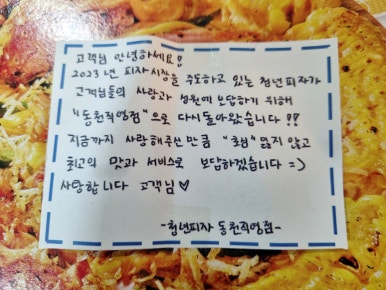 고객님 안녕하세요!
2023년 피자시장을 주도하고 있는 청년피자가
고객님들의 사랑과 성원에 보답하기 위해
"동천직영점"으로 다시돌아왔습니다!!
지금까지 사랑해주신만큼 "초심" 잃지 않고
최고의 맛과 서비스로 보답하겠습니다=)
사랑합니다 고객님♡
-청년피자 동천직영점-